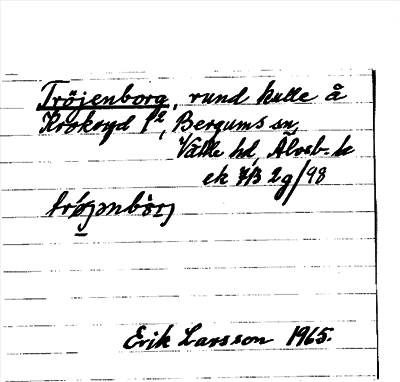 Tröjenborg, rund kulle å
Krokryd 1², Bergums sn,
Vättle hd, Älvsb. l.
ek 7B 2g/98
Erik Larsson 1965.